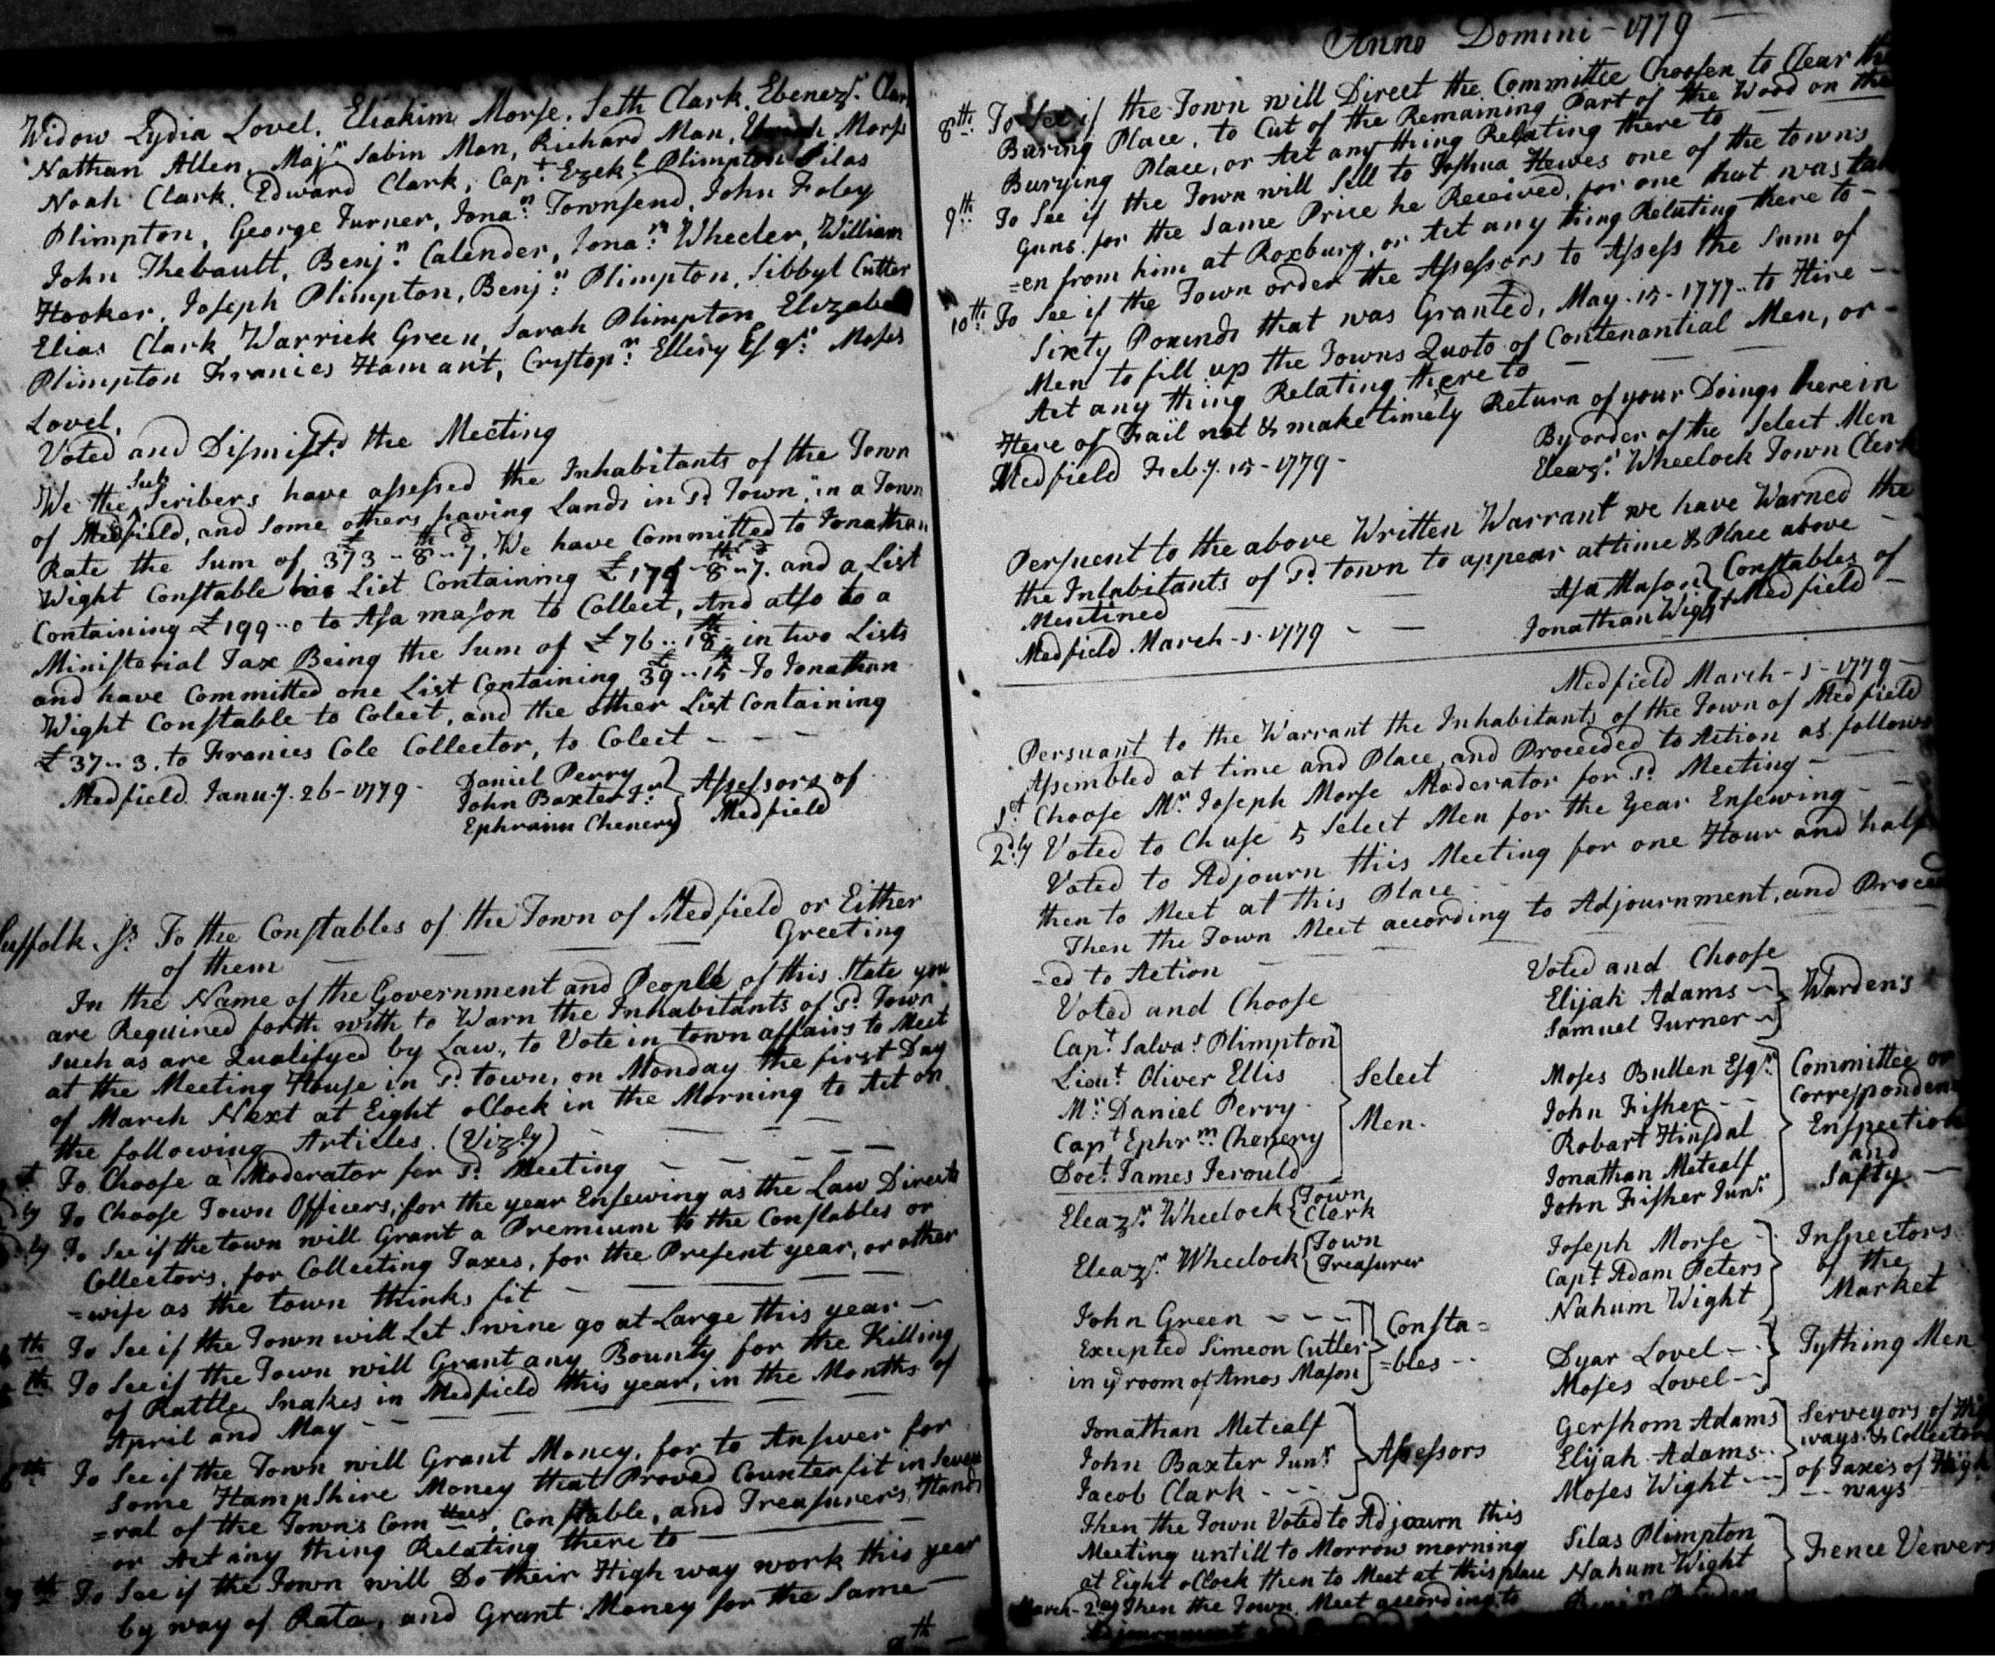 Widow Lydia Lovel, Eliakim Morse, Seth Clark, Ebenezr. Clar
Nathan Allen, Majr. Sabin Man, Richard Man, Morse
Noah Clark, Edward Clark, Capt. Ezekl. Plimpton Silas
Plimpton, George Turner, Jonan. Townsend, John Foley
John Thebault, Benjn. Calender, Jonan. Wheeler, William
Hooker, Joseph Plimpton, Benjn. Plimpton, Sibbyl Cutter
Elias Clark Warrick Green, Sarah Plimpton Elizabe
Plimpton Francies Hamant, Crystopr. Ellery Esqr. Moses
Lovel,
Voted and Dismist. the Meeting
We the Sub Scribers have assessed the Inhabitants of the Town
of Medfield, and some others having Lands in sd. Town, in a Town
Rate the Sum of £373 - 8th - 7d. We have Committed to Jonathan
Wight Constable his List Containing £174 - 8th - 7d. and a List
Containing £199 - 0 to Asa mason to Collect, And also to a
Ministerial Tax Being the Sum of £76 - 18th - in two Lists
and have Committed one List Containing £39 - 15th - To Jonathan
Wight Constable to Colect, and the other List Containing
£37 - 3. to Francies Cole Collector, to Colect - - -
Medfield Janu.y. 26 - 1779 -
Daniel Perry
John Baxter Jur.
Ephraim Chenery
Assessors of
Medfield
Suffolk. Ss. To the Constables of the Town of Medfield or Either
of them - - - Greeting
In the Name of the Government and People of this State you
are Required forth with to Warn the Inhabitants of sd. Town
such as are Qualifyed by Law, to Vote in town affairs to Meet
at the Meeting House in sd. town, on Monday the first Day
of March Next at Eight oClock in the Morning to Act on
the following Articles. (Vizly) - - - -
st. To Choose a Moderator for sd. Meeting - - - -
ly To Choose Town Officers, for the year Ensewing as the Law Directs
ly To See if the town will Grant a Premium to the Constables or
Collectors, for Collecting Taxes, for the Present year, or other
=wise as the town thinks fit - - - -
th To See if the Town will Let Swine go at Large this year -
th To See if the Town will Grant any Bounty for the Killing
of Rattle Snakes in Medfield this year, in the Months of
April and May - - - -
6th To See if the Town will Grant Money, for to Answer for
Some Hampshire Money that Proved Counterfit in Seve
=ral of the Towns Comttees, Constable, and Treasurer's Hands
or Act any thing Relating there to - -
7th To See if the Town will Do their High way work this year
by way of Rate, and Grant Money for the Same -
8th -
Anno Domini - 1779
8th. To See if the Town will Direct the Committee Choosen to Clear the
Buring Place, to Cut of the Remaining Part of the Wood on the
Burying Place, or Act any thing Relating there to -
9th. To See if the Town will Sell to Joshua Hewes one of the towns
Guns. for the Same Price he Received, for one that was tak
=en from him at Roxbury, or Act any thing Relating there to -
10th. To See if the Town order the Assessors to Assess the Sum of
Sixty Pounds that was Granted, May - 15 - 1777 - to Hire -
Men to fill up the Towns Quoto of Contenantial Men, or -
Act any thing Relating there to - - -
Here of Fail not & make timely Return of your Doings herein
Medfield Feb.y. 15 - 1779 -
By order of the Select Men
Eleazr. Wheelock Town Clerk
Persuent to the above Written Warrant we have Warned the
the Inhabitants of sd. town to appear at time & Place above -
Mentined - - -
Medfield March - 1 - 1779 - -
Asa Mason
Jonathan Wight
Constables of
Medfield -
Medfield March - 1 - 1779 -
Persuant to the Warrant the Inhabitants of the Town of Medfield
Assembled at time and Place, and Proceeded to Action as follows
1st. Choose Mr. Joseph Morse Moderator for sd. Meeting - -
2d.ly Voted to Chuse 5 Select Men for the Year Ensewing -
Voted to Adjourn this Meeting for one Hour and half
then to Meet at this Place - - -
Then the Town Meet according to Adjournment, and Procee
=ed to Action - - -
Voted and Choose
Capt. Salvas. Plimpton
Lieut. Oliver Ellis
Mr. Daniel Perry
Capt Ephrm. Chenery
Doct. James Jerould
Select
Men.
Eleazr. Wheelock Town
Clerk
Eleazr. Wheelock Town
Treasurer
John Green - - -
Excepted Simeon Cutler
in ye room of Amos Mason
Consta=
=bles - -
Jonathan Metcalf
John Baxter Junr.
Jacob Clark - - -
Assessors
Then the Town Voted to Adjourn this
Meeting untill to Morrow morning
at Eight oClock then to Meet at this place
March - 2d.ay Then the Town Meet according to
Voted and Choose
Elijah Adams -
Samuel Turner -
Wardens
Moses Bullen Esqr.
John Fisher - -
Robart Hinsdal
Jonathan Metcalf
John Fisher Junr.
Committee of
Correspondenc
Enspection
and
Safty -
Joseph Morse -
Capt. Adam Peters
Nahum Wight
Inspectors
of the
Market
Dyar Lovel - -
Moses Lovel - -
Tything Men
Gershom Adams
Elijah Adams - -
Moses Wight - -
Serveyors of High
ways & Collectors
of Taxes of High
- ways -
Silas Plimpton
Nahum Wight
Fence Vewers